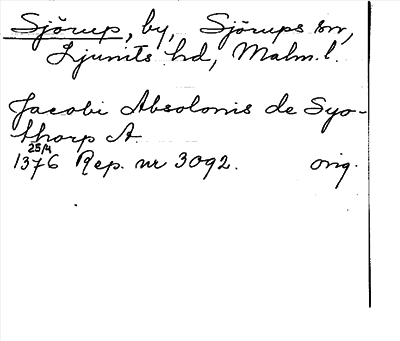 Sjörup, by, Sjörups sn,
Ljunits hd, Malm. l.
Jacobi Absolonis de Syo-
thorp A.
25/4
1376 Rep. nr 3092. orig.